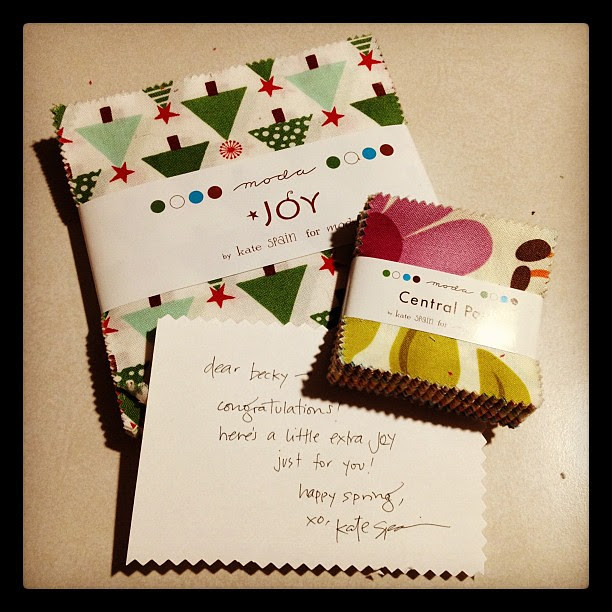 moda
JOY
by kate spain for moda
moda
Central Pa
by kate spain for
dear becky —
congratulations!
here's a little extra joy
just for you!
happy spring,
xo, kate spain